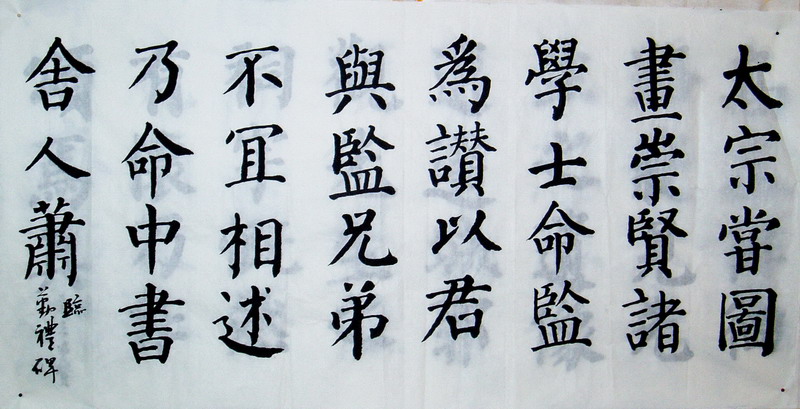 太宗嘗圖
畫崇賢諸
學士命監
為讃以君
與監兄弟
不冝相述
乃命中書
舎人蕭
臨
勤禮碑